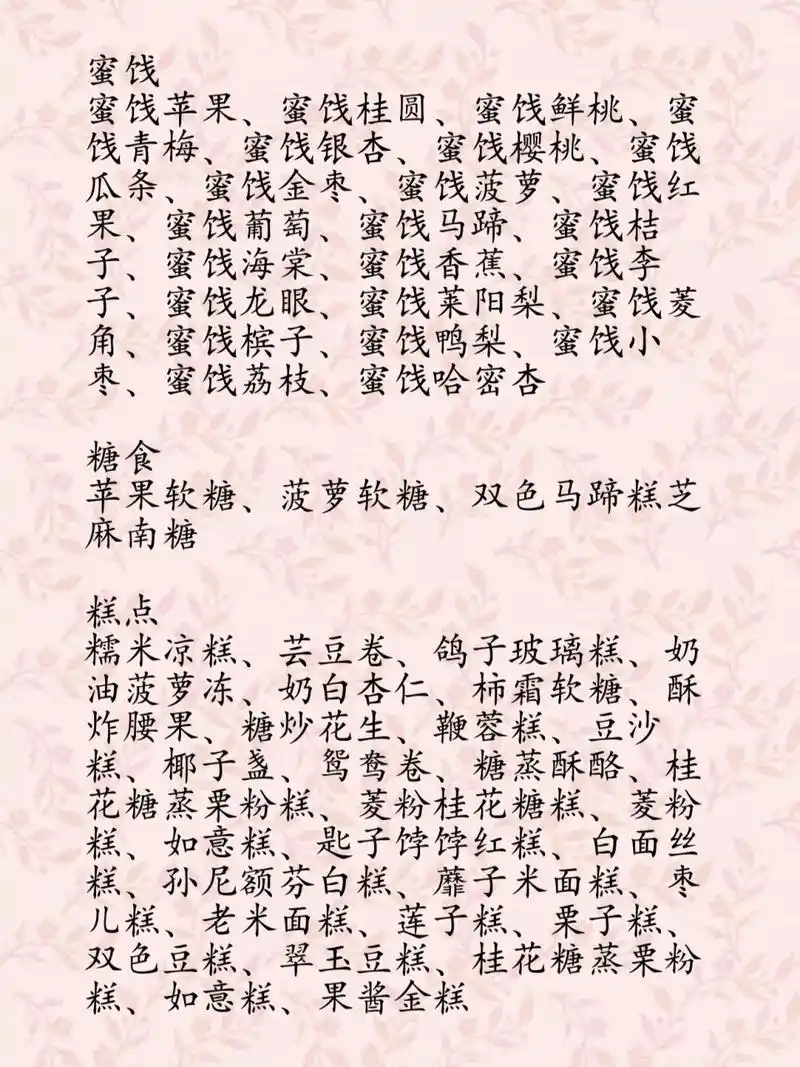 蜜饯
蜜饯苹果、蜜饯桂圆、蜜饯鲜桃、蜜
饯青梅、蜜饯银杏、蜜饯樱桃、蜜饯
瓜条、蜜饯金枣、蜜饯菠萝、蜜饯红
果、蜜饯葡萄、蜜饯马蹄、蜜饯桔
子、蜜饯海棠、蜜饯香蕉、蜜饯李
子、蜜饯龙眼、蜜饯莱阳梨、蜜饯菱
角、蜜饯槟子、蜜饯鸭梨、蜜饯小
枣、蜜饯荔枝、蜜饯哈密杏
糖食
苹果软糖、菠萝软糖、双色马蹄糕芝
麻南糖
糕点
糯米凉糕、芸豆卷、鸽子玻璃糕、奶
油菠萝冻、奶白杏仁、柿霜软糖、酥
炸腰果、糖炒花生、鞭蓉糕、豆沙
糕、椰子盏、鸳鸯卷、糖蒸酥酪、桂
花糖蒸栗粉糕、菱粉桂花糖糕、菱粉
糕、如意糕、匙子饽饽红糕、白面丝
糕、孙尼额芬白糕、蘼子米面糕、枣
儿糕、老米面糕、莲子糕、栗子糕、
双色豆糕、翠玉豆糕、桂花糖蒸栗粉
糕、如意糕、果酱金糕